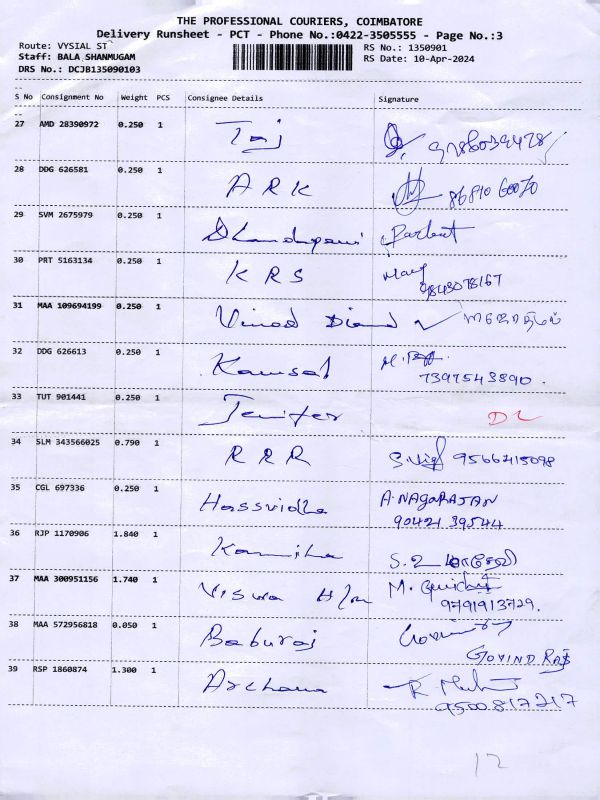 THE PROFESSIONAL COURIERS, COIMBATORE
Delivery Runsheet - PCT - Phone No.:0422-3505555 - Page No.:3
Route: VYSIAL ST
RS No.: 1350901
Staff: BALA SHANMUGAM
RS Date: 10-Apr-2024
DRS No.: DCJB135090103
S No Consignment No Weight PCS Consignee Details Signature
27 AMD 28390972 0.250 1 Taj
28 DDG 626581 0.250 1 ARK
29 SVM 2675979 0.250 1
30 PRT 5163134 0.250 1 KRS
9843078167
31 MAA 109694199 0.250 1 Vinod
32 DDG 626613 0.250 1
7397543890.
33 TUT 901441 0.250 1 Jenifer DL
34 SLM 343566025 0.790 1 RRR 9566215098
35 CGL 697336 0.250 1 Hassvidha A. NAGARAJAN
90421 39544
36 RJP 1170906 1.840 1
37 MAA 300951156 1.740 1 Viswa M.
9791913729.
38 MAA 572956818 0.050 1 Baburaj
GOVIND RAJ
39 RSP 1860874 1.300 1 Archana
9500817217
12